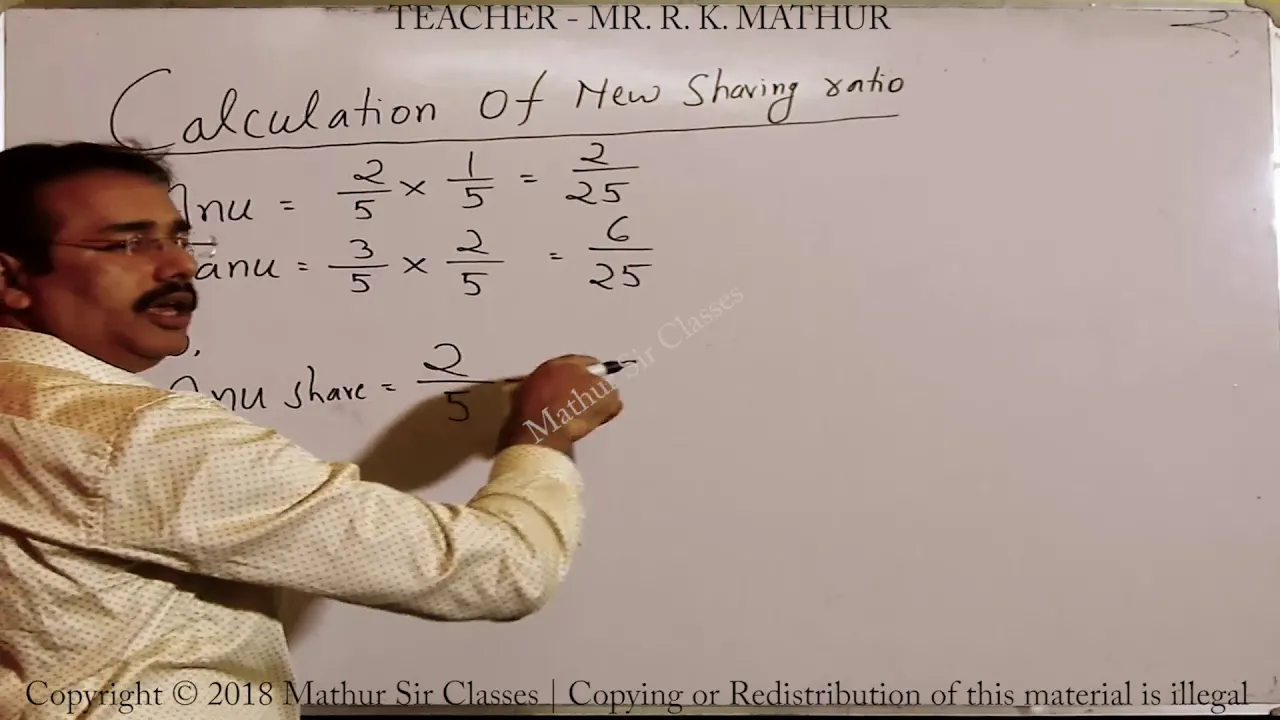 TEACHER - MR. R. K. MATHUR
Calculation Of New Sharing ratio
nu = 2/5 × 1/5 = 2/25
anu = 3/5 × 2/5 = 6/25
nu share = 2/5 - 
Mathur Sir Classes
Copyright © 2018 Mathur Sir Classes | Copying or Redistribution of this material is illegal